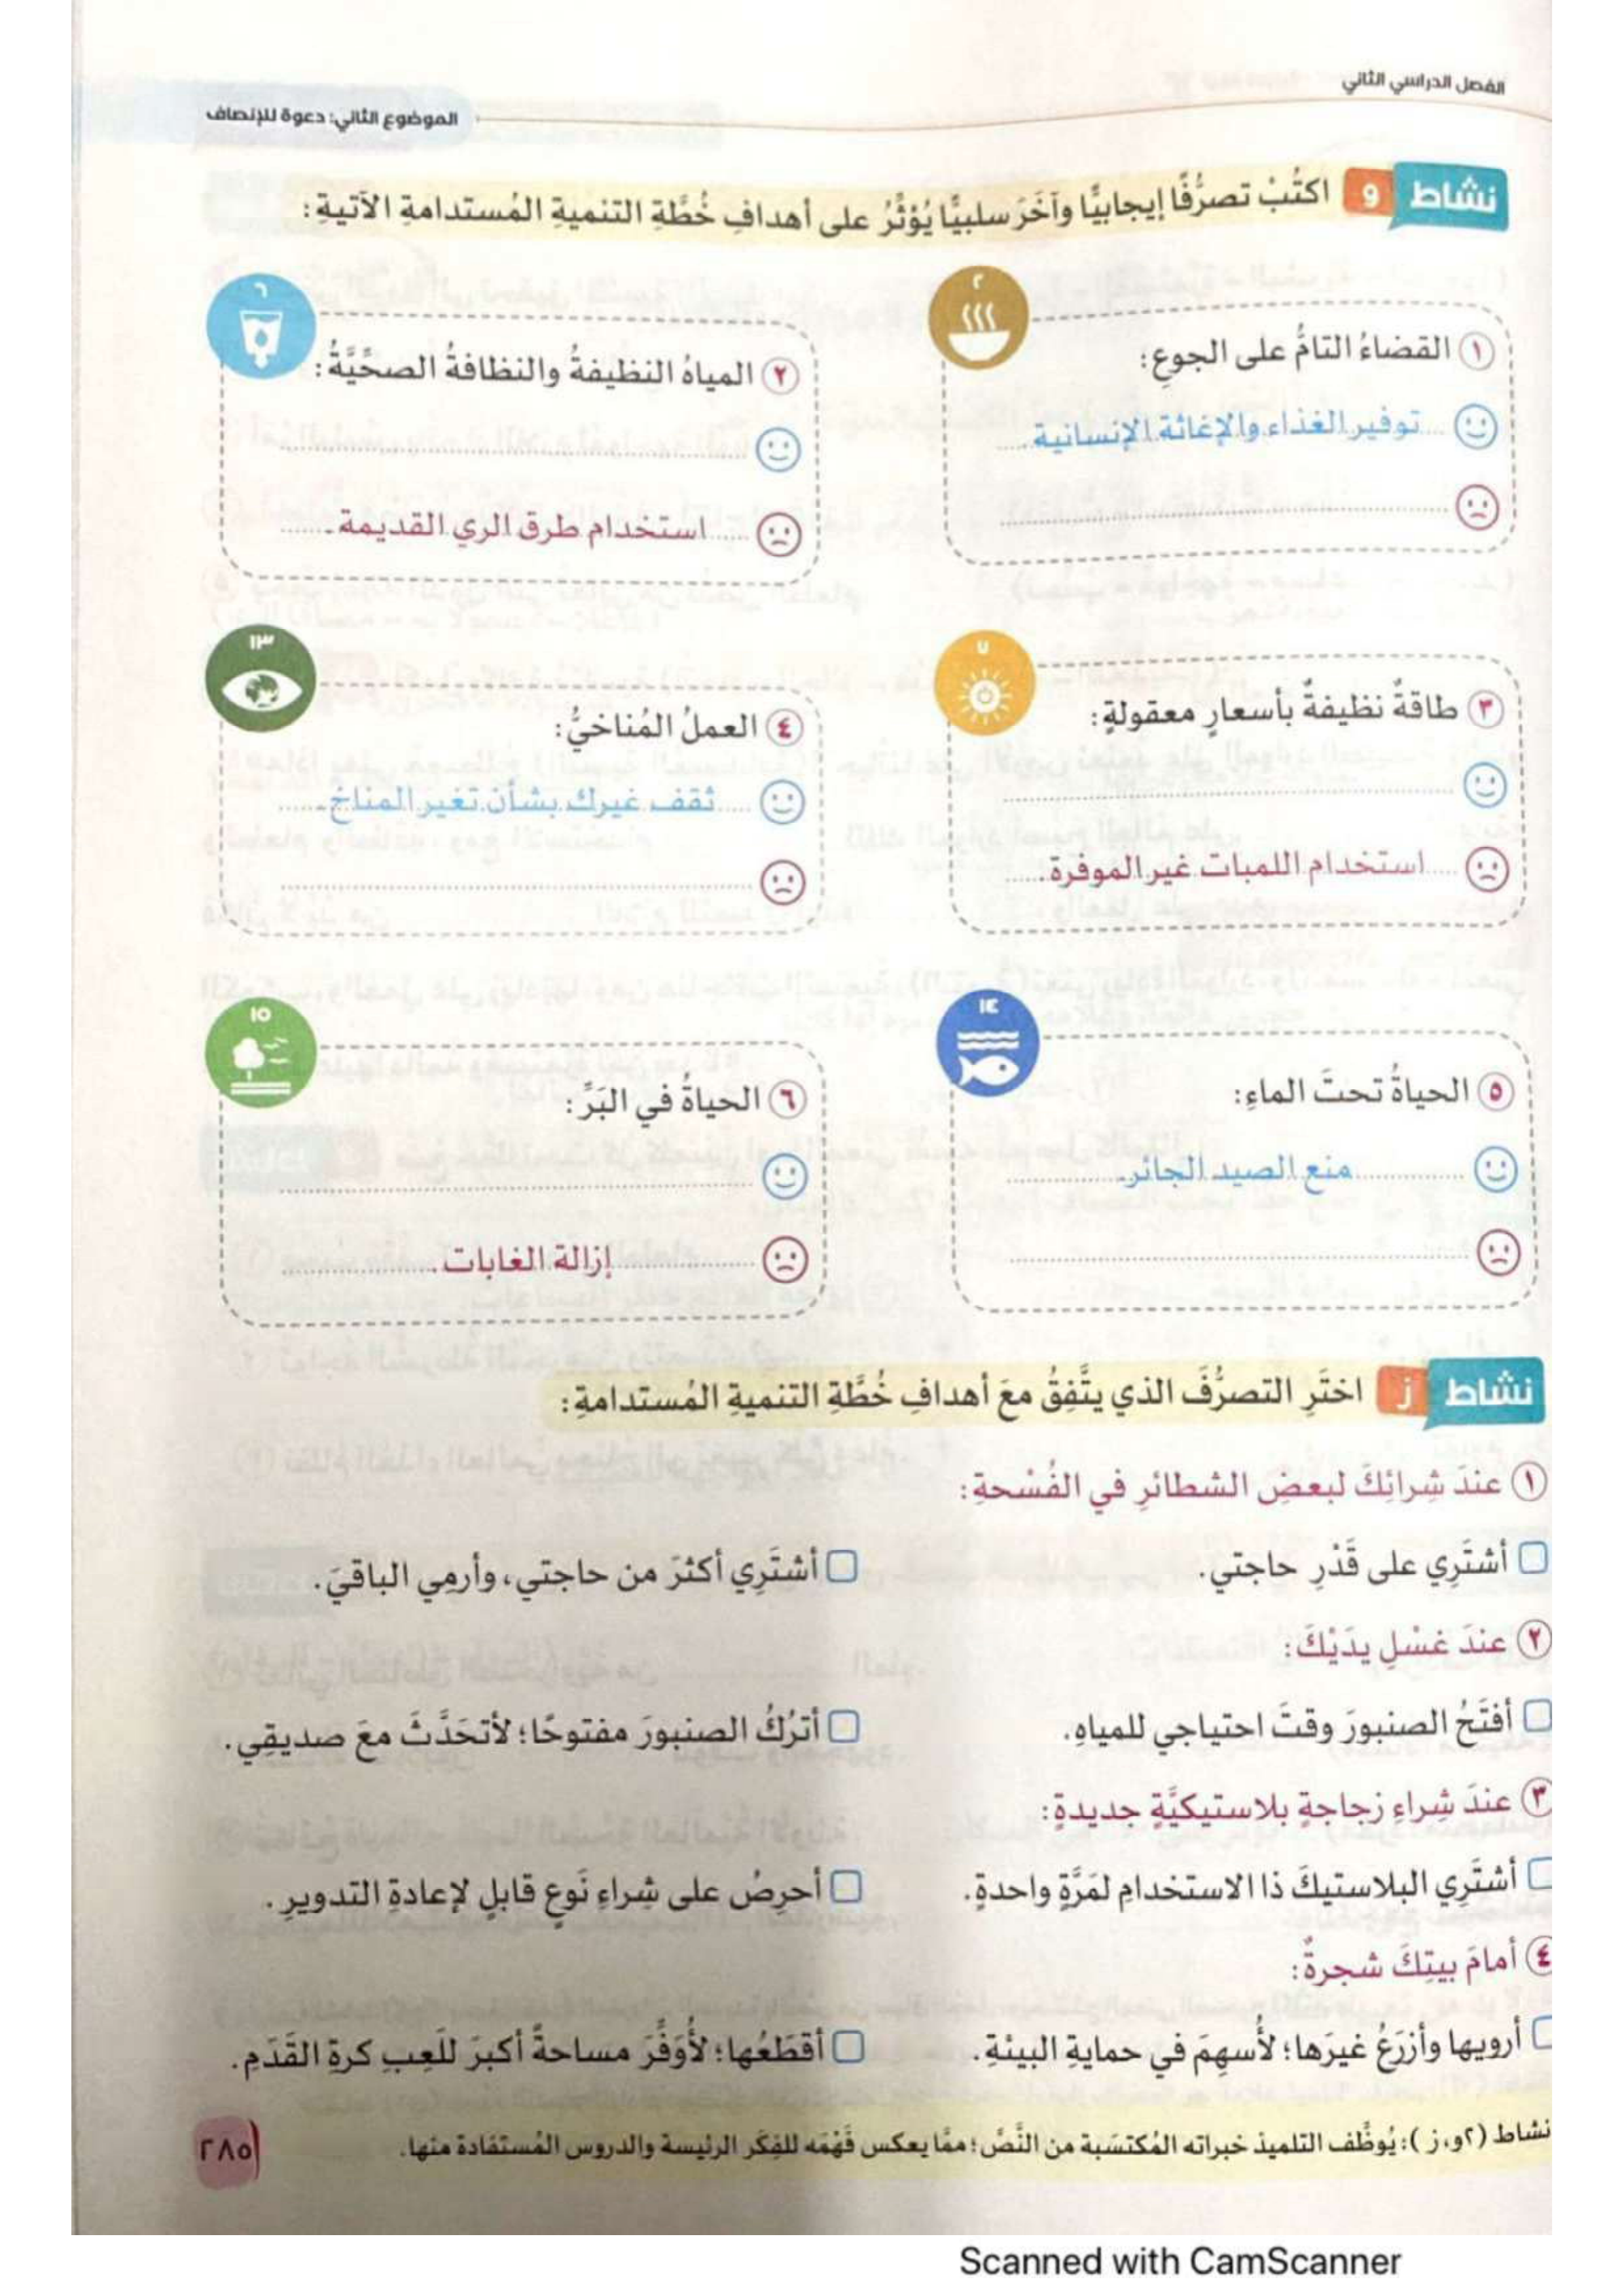 الفصل الدراسي الثاني
الموضوع الثاني: دعوة للإنصاف
نشاط و اكتُبْ تصرُّفًا إيجابيًّا وآخَرَ سلبيًّا يُؤثِّرُ على أهدافِ خُطَّةِ التنميةِ المُستدامةِ الآتيةِ:
٢
١ القضاءُ التامُّ على الجوعِ:
توفير الغذاء والإغاثة الإنسانية.
٦
٢ المياهُ النظيفةُ والنظافةُ الصحِّيَّةُ:
استخدام طرق الري القديمة.
٧
٣ طاقةٌ نظيفةٌ بأسعارٍ معقولةٍ:
استخدام اللمبات غير الموفرة.
١٣
٤ العملُ المُناخيُّ:
ثقف غيرك بشأن تغير المناخ.
١٤
٥ الحياةُ تحتَ الماءِ:
منع الصيد الجائر.
١٥
٦ الحياةُ في البَرِّ:
إزالة الغابات.
نشاط ز اختَرِ التصرُّفَ الذي يتَّفِقُ معَ أهدافِ خُطَّةِ التنميةِ المُستدامةِ:
١ عندَ شِرائِكَ لبعضِ الشطائرِ في الفُسْحةِ:
أشتَرِي على قَدْرِ حاجتي. أشتَرِي أكثرَ من حاجتي، وأرمِي الباقيَ.
٢ عندَ غسْلِ يدَيْكَ:
أفتَحُ الصنبورَ وقتَ احتياجي للمياهِ. أترُكُ الصنبورَ مفتوحًا؛ لأتحَدَّثَ معَ صديقِي.
٣ عندَ شِراءِ زجاجةٍ بلاستيكيَّةٍ جديدةٍ:
أشتَرِي البلاستيكَ ذا الاستخدامِ لمَرَّةٍ واحدةٍ. أحرِصُ على شِراءِ نَوعٍ قابلٍ لإعادةِ التدويرِ.
٤ أمامَ بيتِكَ شجرةٌ:
أرويها وأزرَعُ غيرَها؛ لأُسهِمَ في حمايةِ البيئةِ. أقطَعُها؛ لأُوَفِّرَ مساحةً أكبرَ للَعِبِ كرةِ القَدَمِ.
نشاط (٢و، ز): يُوظِّف التلميذ خبراته المُكتسَبة من النَّصِّ؛ ممَّا يعكس فَهْمَه للفِكَر الرئيسة والدروس المُستفادة منها.
٢٨٥
Scanned with CamScanner